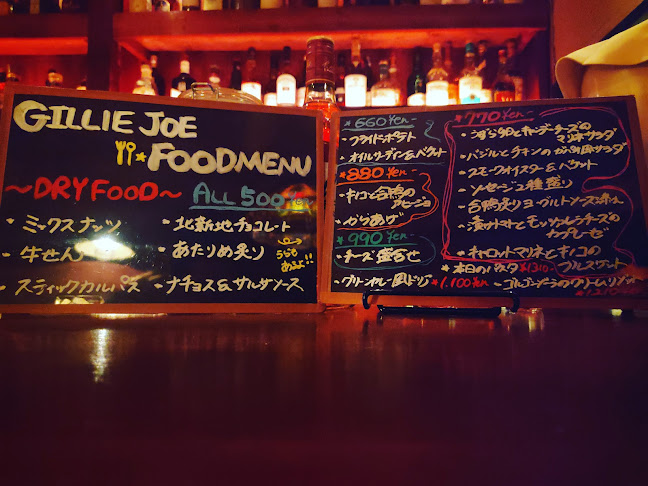 GILLIE JOE
FOOD MENU
~DRY FOOD~ ALL 500
・ミックスナッツ
・北新地チョコレート
・牛せん
・あたりめ炙り
うらもあるよ!!
・スティックカルパス
・ナチョス&サルサソース
★660yen~
・フライドポテト
・オイルサーディン&バケット
★880yen~
・キノコと合鴨のアヒージョ
・からあげ
★990yen~
・チーズ盛合せ
・グリーンカレー風ドリア ★1,100yen
★770yen~
チーズのマリネサラダ
・バジルとチキンの サラダ
・スモークオイスター&バケット
・ソーセージ2種盛り
・合鴨炙りヨーグルトソース添え
・漬けトマトとモッツァレラチーズのカプレーゼ
・キャロットマリネとキノコのブルスケッタ
★本日のパスタ ¥1,310~
・ゴルゴンゾーラのクリームリゾット